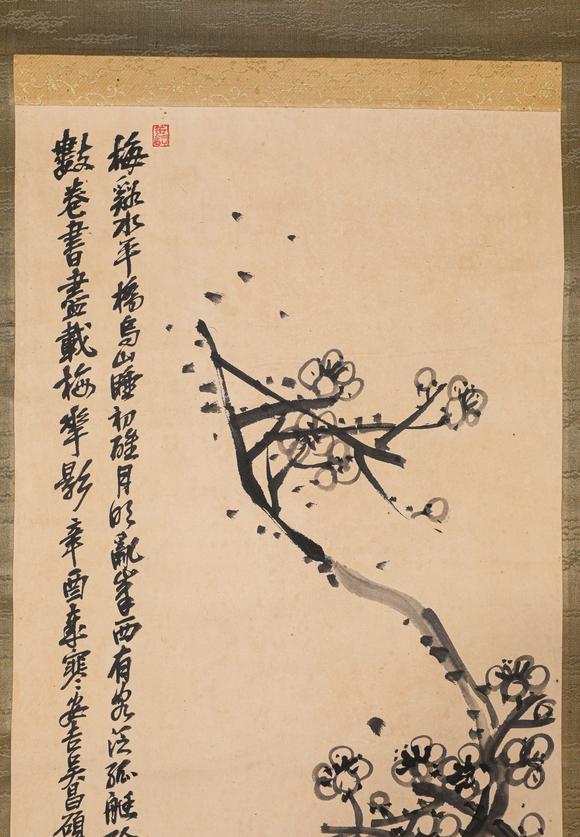 梅谿水平橋烏山睡初醒月明亂峯西有客泛孤艇
數卷書盡載梅華影辛酉春寒安吉吳昌碩